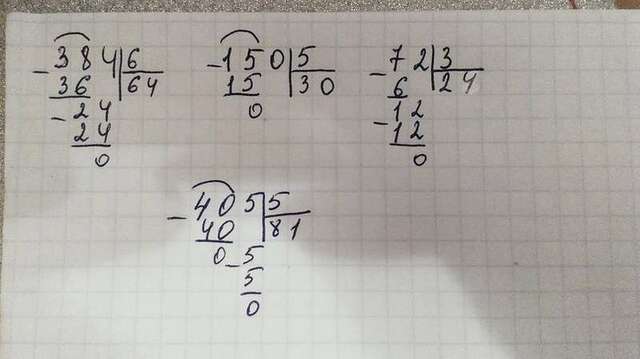 384 6
- 36 64
- 24
24
0
150 5
- 15 30
0
72 3
- 6 24
- 12
12
0
405 5
- 40 81
0 - 5
5
0